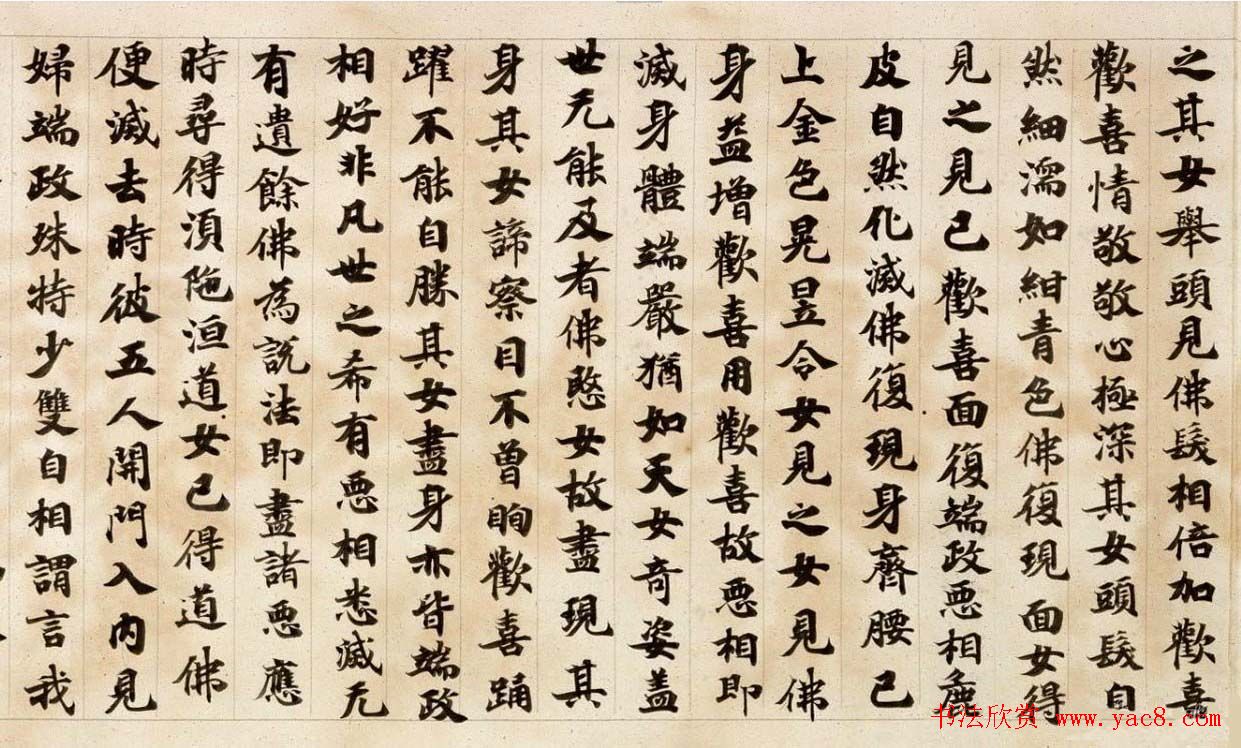 之其女舉頭見佛髮相倍加歡喜
歡喜情敬敬心極深其女頭髮自
然細濡如紺青色佛復現面女得
見之見已歡喜面復端政惡相麁
皮自然化滅佛復現身齊腰已
上金色晃昱令女見之女見佛
身益增歡喜用歡喜故惡相即
滅身體端嚴猶如天女奇姿盖
世无能及者佛愍女故盡現其
身其女諦察目不曾眴歡喜踊
躍不能自勝其女盡身亦皆端政
相好非凡世之希有惡相悉滅无
有遺餘佛為說法即盡諸惡應
時尋得湏陁洹道女已得道佛
便滅去時彼五人開門入內見
婦端政殊特少雙自相謂言我
书法欣赏 www.yac8.com